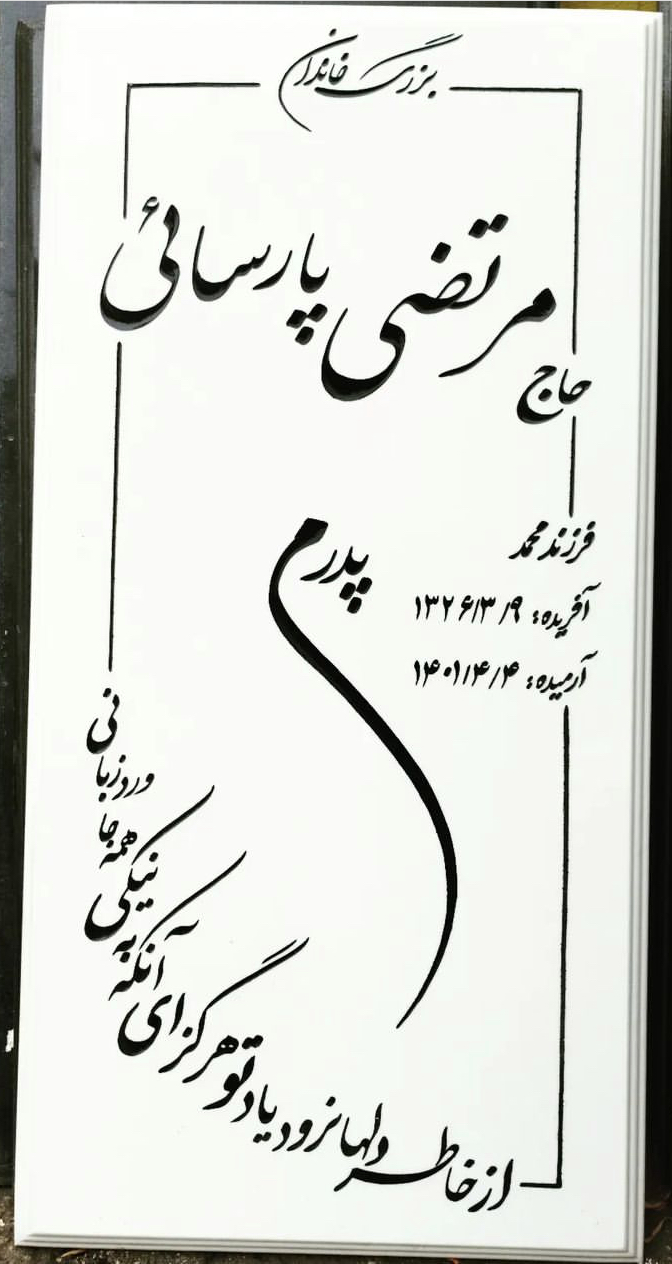 بزرگ خاندان
حاج مرتضی پارسائی
فرزند محمد
آفریده: ۱۳۲۶/۳/۹
آرمیده: ۱۴۰۱/۴/۴
پدرم
از خاطر دلها نرود یاد تو هرگز ای آنکه به نیکی همه جا ورد زبانی